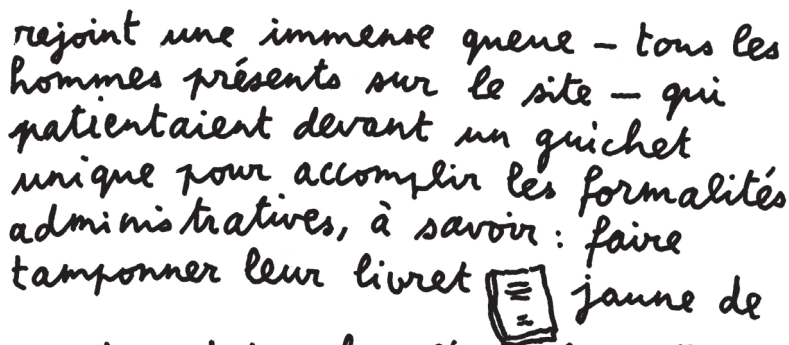 rejoint une immense queue – tous les
hommes présents sur le site – qui
patientaient devant un guichet
unique pour accomplir les formalités
administratives, à savoir : faire
tamponner leur livret jaune de